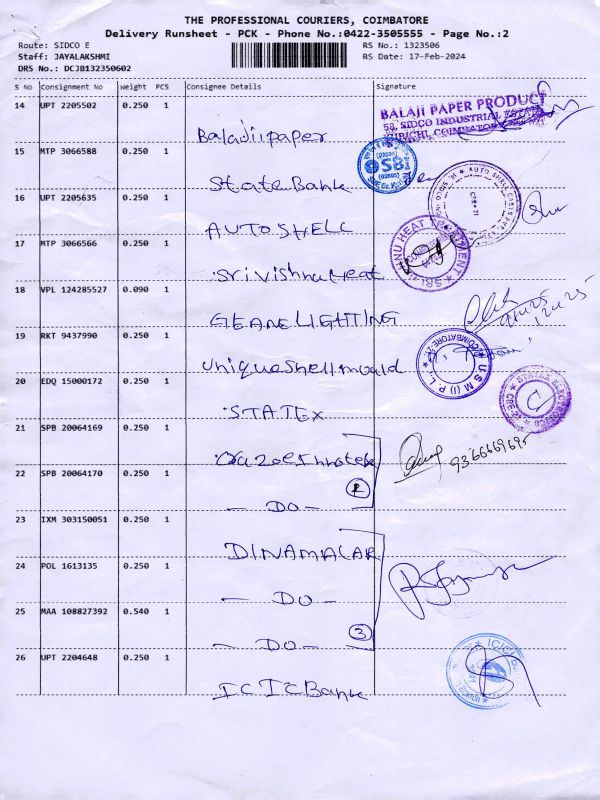 THE PROFESSIONAL COURIERS, COIMBATORE
Delivery Runsheet - PCK - Phone No.:0422-3505555 - Page No.:2
Route: SIDCO E RS No.: 1323506
Staff: JAYALAKSHMI RS Date: 17-Feb-2024
DRS No.: DCJB132350602
S No Consignment No Weight PCS Consignee Details Signature
14 UPT 2205502 0.250 1
BALAJI PAPER PRODUCT
58, SIDCO INDUSTRIAL ESTATE
Baladiipaper
15 MTP 3066588 0.250 1
SBI
State Bank
16 UPT 2205635 0.250 1
AUTO SHELL CASTS PVT. LTD
AUTO SHELL
17 MTP 3066566 0.250 1
Sri Vishnu Heat
18 VPL 124285527 0.090 1
GEARE LIGHTING
19 RKT 9437990 0.250 1
Unique Shell mould
USM (I) P.L
COIMBATORE-21
20 EDQ 15000172 0.250 1
STATEX
21 SPB 20064169 0.250 1
22 SPB 20064170 0.250 1
2
— DO —
23 IXM 303150051 0.250 1
DINAMALAR
24 POL 1613135 0.250 1
— DO —
25 MAA 108827392 0.540 1
3
— DO —
26 UPT 2204648 0.250 1
ICICI
ICIC Bank